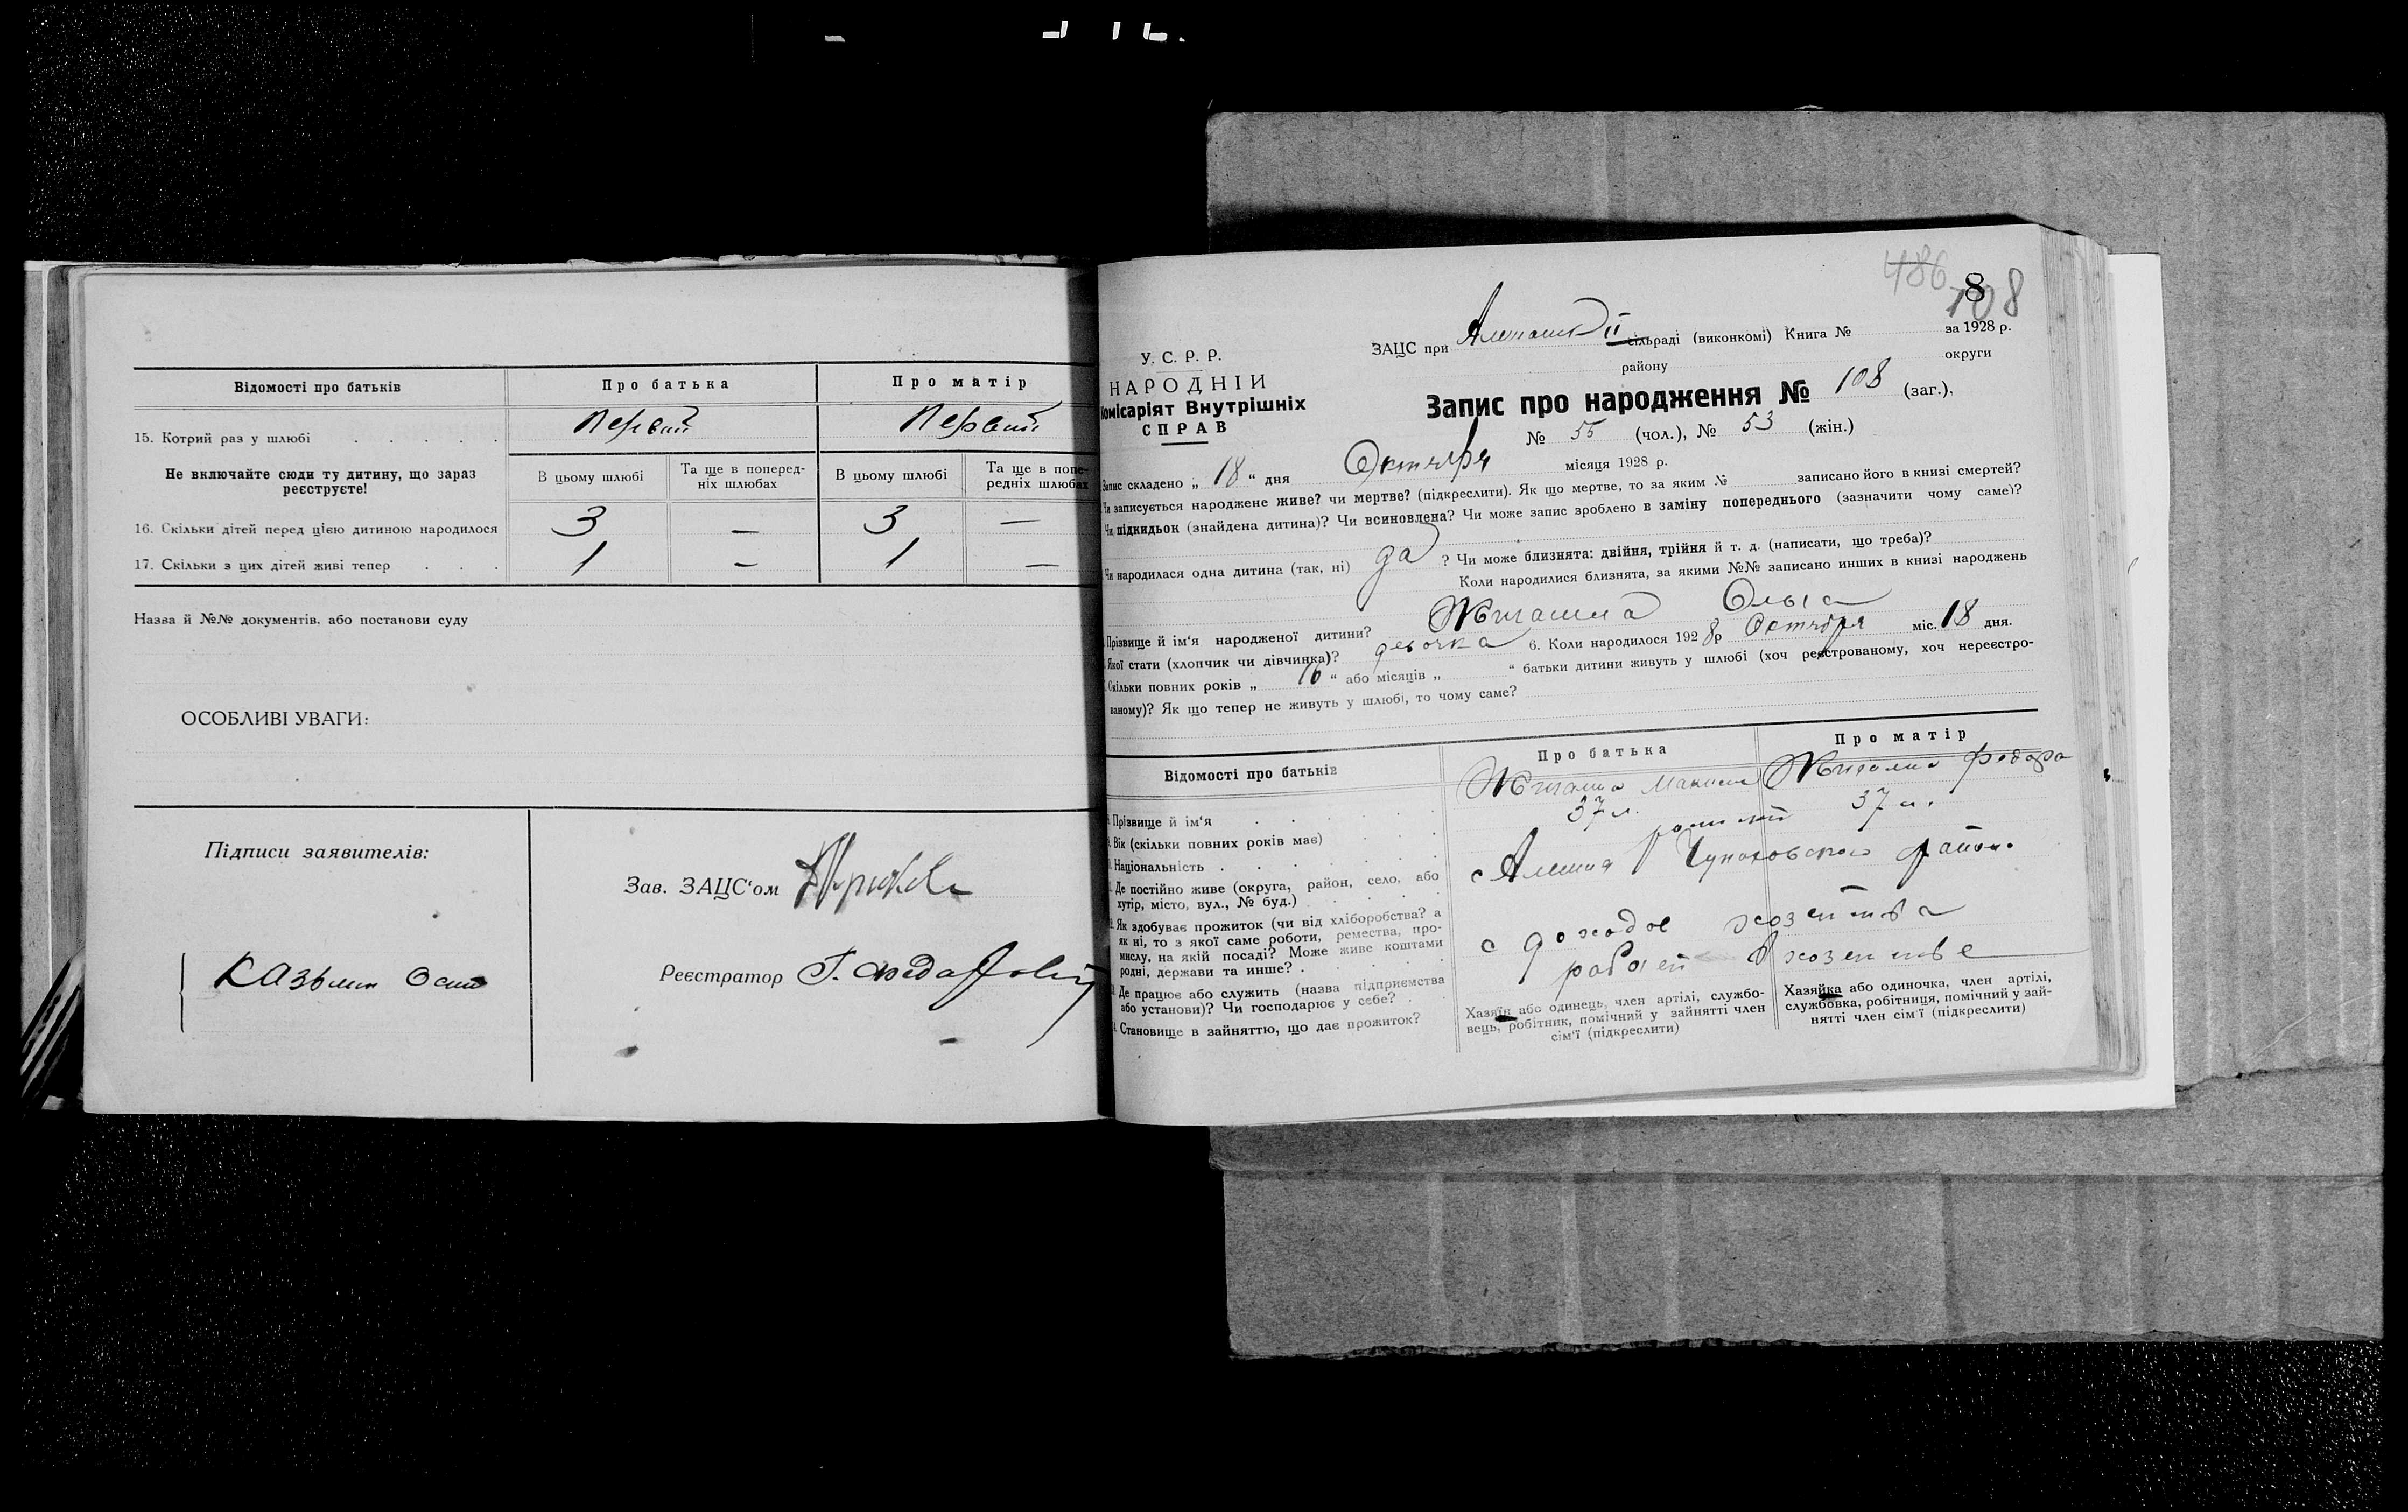 Відомості про батьків
Про батька
Про матір
15. Котрий раз у шлюбі . . . . .
Первый
Первый
Не включайте сюди ту дитину, що зараз
реєструєте!
В цьому шлюбі
Та ще в поперед-
ніх шлюбах
В цьому шлюбі
Та ще в попе-
редніх шлюбах
16. Скільки дітей перед цією дитиною народилося
3
—
3
—
17. Скільки з цих дітей живі тепер . . .
1
—
1
—
Назва й №№ документів, або постанови суду
ОСОБЛИВІ УВАГИ:
Підписи заявителів:
Зав. ЗАЦС‘ом
Реєстратор
486
108
8
У. С. Р. Р.
НАРОДНІЙ
Комісаріят Внутрішніх
СПРАВ
ЗАЦС при II сільраді (виконкомі) Книга № за 1928 р.
району округи
Запис про народження № 108 (заг.),
№ 55 (чол.), № 53 (жін.)
Запис складено „ 18 “ дня Октября місяця 1928 р.
Чи записується народжене живе? чи мертве? (підкреслити). Як що мертве, то за яким № записано його в книзі смертей?
Чи підкидьок (знайдена дитина)? Чи всиновлена? Чи може запис зроблено в заміну попереднього (зазначити чому саме)?
Чи народилася одна дитина (так, ні) да ? Чи може близнята: двійня, трійня й т. д. (написати, що треба)?
Коли народилися близнята, за якими №№ записано инших в книзі народжень
Прізвище й ім‘я народженої дитини? Ольга
Якої стати (хлопчик чи дівчинка)? девочка 6. Коли народилося 1928 р Октября міс. 18 дня.
Скільки повних років „ 16 “ або місяців „ “ батьки дитини живуть у шлюбі (хоч реєстрованому, хоч нереєстро-
ваному)? Як що тепер не живуть у шлюбі, то чому саме?
Відомості про батьків
Про батька
Про матір
Прізвище й ім‘я . . . .
Вік (скільки повних років має) . . .
37 л.
37 л.
Національність . . . . .
Де постійно живе (округа, район, село, або
хутір, місто, вул., № буд.) . . . .
район.
Як здобуває прожиток (чи від хліборобства? а
як ні, то з якої саме роботи, ремества, про-
мислу, на якій посаді? Може живе коштами
родні, держави та инше? .
Де працює або служить (назва підприємства
або установи)? Чи господарює у себе? .
Становище в зайняттю, що дає прожиток?
Хазяїн або одинець, член артілі, службо-
вець, робітник, помічний у зайнятті член
сім‘ї (підкреслити)
Хазяйка або одиночка, член артілі,
службовка, робітниця, помічний у зай-
нятті член сім‘ї (підкреслити)